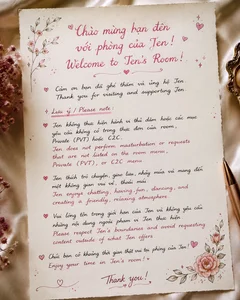 Chào mừng bạn đến
với phòng của Jen!
Welcome to Jen's Room!
Cảm ơn bạn đã ghé thăm và ủng hộ Jen
Thank you for visiting and supporting Jen
Lưu ý / Please note:
Jen không thực hiện hành vi thủ dâm hoặc các màn
yêu cầu không có trong thực đơn của room,
Private (PVT) hoặc C2C.
Jen does not perform masturbation or requests
that are not listed on the room menu,
Private (PVT), or C2C menu.
Jen thích trò chuyện, giao lưu, nhảy múa và mang đến
một không gian vui vẻ, thoải mái
Jen enjoys chatting, having fun, dancing, and
creating a friendly, relaxing atmosphere.
Vui lòng tôn trọng giới hạn của Jen và không yêu cầu
những nội dung ngoài phạm vi Jen thực hiện
Please respect Jen's boundaries and avoid requesting
content outside of what Jen offers.
Chúc bạn có khoảng thời gian thật vui tại phòng của Jen!
Enjoy your time in Jen's room!
Thank you!